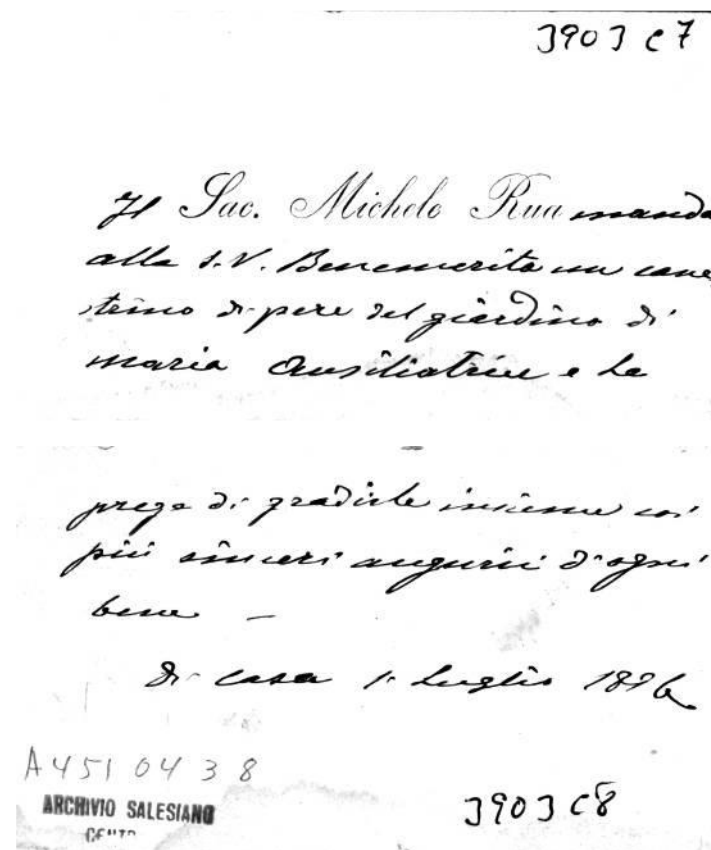 3903 C7
Il Sac. Michele Rua manda
alla S. V. Benemerita un cane
strino di pere del giardino di
Maria Ausiliatrice e La
prega di gradirle insieme coi
più sinceri augurii d'ogni
bene –
Di casa 1. Luglio 1896
A4510438
ARCHIVIO SALESIANO
3903 C8